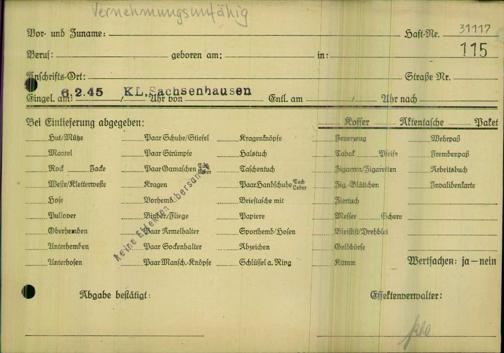 Vernehmungsunfähig
Vor- und Zuname: Haft-Nr. 31117
Beruf: geboren am: in: 115
Anschrifts-Ort: Straße Nr.
6.2.45 KL.Sachsenhausen
Eingel. am Uhr von Entl. am Uhr nach
Bei Einlieferung abgegeben: Koffer Aktentasche Paket
Hut/Mütze Paar Schuhe/Stiefel Kragenknöpfe Feuerzeug Wehrpaß
Mantel Paar Strümpfe Halstuch Tabak Pfeife Fremdenpaß
Rock Jacke Paar Gamaschen Tuch Leder Taschentuch Zigarren/Zigaretten Arbeitsbuch
Weste/Kletterweste Kragen Paar Handschuhe Tuch Leder Zig.-Blättchen Invalidenkarte
Hose Vorhemd Brieftasche mit Feuerzeug
Pullover Binder/Fliege Papiere Messer Schere
Oberhemden Paar Ärmelhalter Sporthemd/Hosen Bleistift/Drehblei
Unterhemden Paar Sockenhalter Abzeichen Geldbörse
Unterhosen Paar Mansch.-Knöpfe Schlüssel a. Ring Kamm Wertsachen: ja — nein
Keine
Abgabe bestätigt: Effektenverwalter: